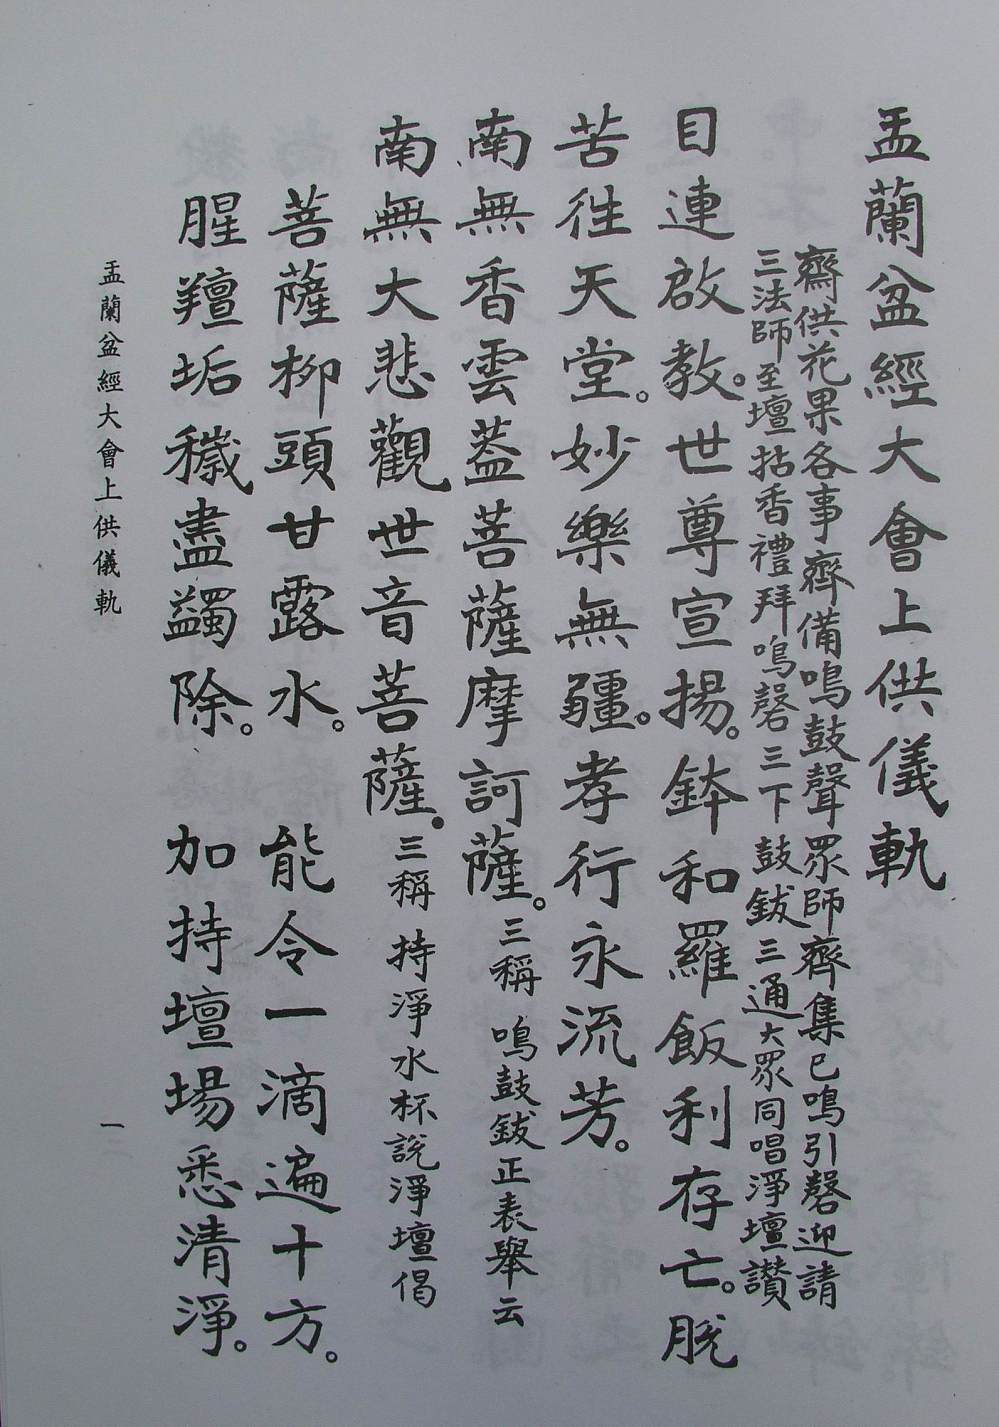 盂蘭盆經大會上供儀軌
齋供花果各事齊備鳴鼓聲眾師齊集已鳴引磬迎請
三法師至壇拈香禮拜鳴磬三下 鼓鈸三通大眾同唱淨壇讚
目連啟教。世尊宣揚。鉢和羅飯利存亡。脫
苦徃天堂。妙樂無疆。孝行永流芳。
南無香雲蓋菩薩摩訶薩。三稱 鳴鼓鈸正表舉云
南無大悲觀世音菩薩。三稱 持淨水杯說淨壇偈
菩薩柳頭甘露水。 能令一滴遍十方。
腥羶垢穢盡蠲除。 加持壇場悉清淨。
盂蘭盆經大會上供儀軌
一